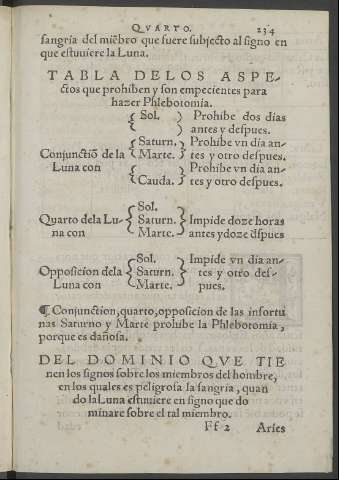 QVARTO. 234
sangria del miẽbro que fuere subjecto al signo en
que estuuiere la Luna.
TABLA DELOS ASPE-
ctos que prohiben y son empecientes para
hazer Phlebotomia.
Conjunctiõ de la Luna con
{ Sol. } Prohibe dos dias
antes y despues.
{ Saturn. Marte. } Prohibe vn dia an-
tes y otro despues.
{ Cauda. } Prohibe vn dia an-
tes y otro despues.
Quarto dela Lu-
na con
{ Sol.
Saturn.
Marte. }
Impide doze horas
antes y doze d̃spues
Opposicion dela
Luna con
{ Sol.
Saturn.
Marte. }
Impide vn dia an-
tes y otro des-
pues.
¶ Conjunction, quarto, opposicion de las infortu
nas Saturno y Marte prohibe la Phlebotomia,
porque es dañosa.
DEL DOMINIO QVE TIE
nen los signos sobre los miembros del hombre,
en los quales es peligrosa la sangria, quan
do la Luna estuuiere en signo que do
minare sobre el tal miembro.
Ff 2 Aries